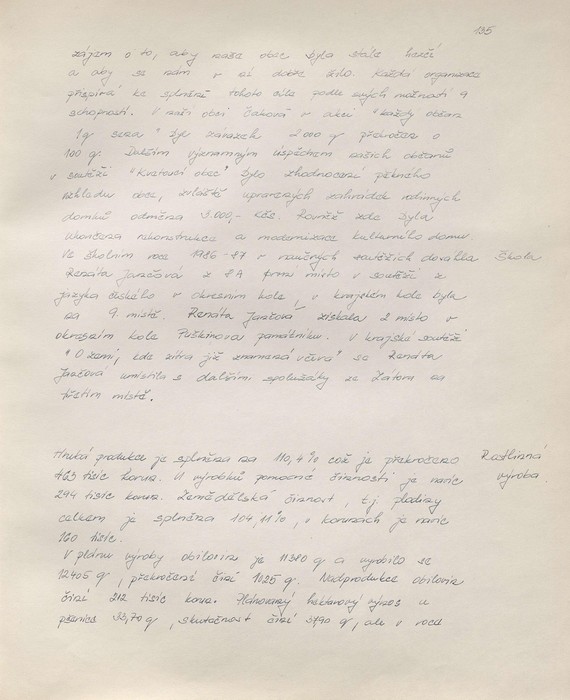 135
zájem o to, aby naše obec byla stále hezčí
a aby se nám v ní dobře žilo. Každá organizace
přispívá ke splnění tohoto cíle podle svých možností a
schopností. V naší obci Čaková v akci "Každý občan
1q sena" byl závazek 2 000 q překročen o
100 q. Dalším významným úspěchem našich občanů
v soutěži "Kvetoucí obec" bylo zhodnocení pěkného
vzhledu obce, zvláště upravených zahrádek rodinných
domků odměna 3.000,- Kčs. Rovněž zde byla
ukončena rekonstrukce a modernizace kulturního domu.
Ve školním roce 1986-87 v naučných soutěžích dosáhla
Škola
Renáta Jančová z 8A první místo v soutěži z
jazyka českého v okresním kole, v krajském kole byla
na 9. místě. Renáta Jančová získala 2 místo v
okresním kole Puškinova památníku. V krajské soutěži
"O zemi, kde zítra již znamená včera" se Renáta
Jančová umístila s dalšími spolužáky ze Zátora na
třetím místě.
Hrubá produkce je splněna na 110,4% což je překročeno
Rostlinná
463 tisíc korun. U výrobků pomocné činnosti je navíc
výroba
294 tisíc korun. Zemědělská činnost, t.j. plodiny
celkem je splněna 104,11%, v korunách je navíc
160 tisíc.
V plánu výroby obilovin je 11380 q a vyrobilo se
12405 q, překročení činí 1025 q. Nadprodukce obilovin
činí 212 tisíc korun. Plánovaný hektarový výnos u
pšenice 33,70 q, skutečnost činí 37,90 q, ale v roce